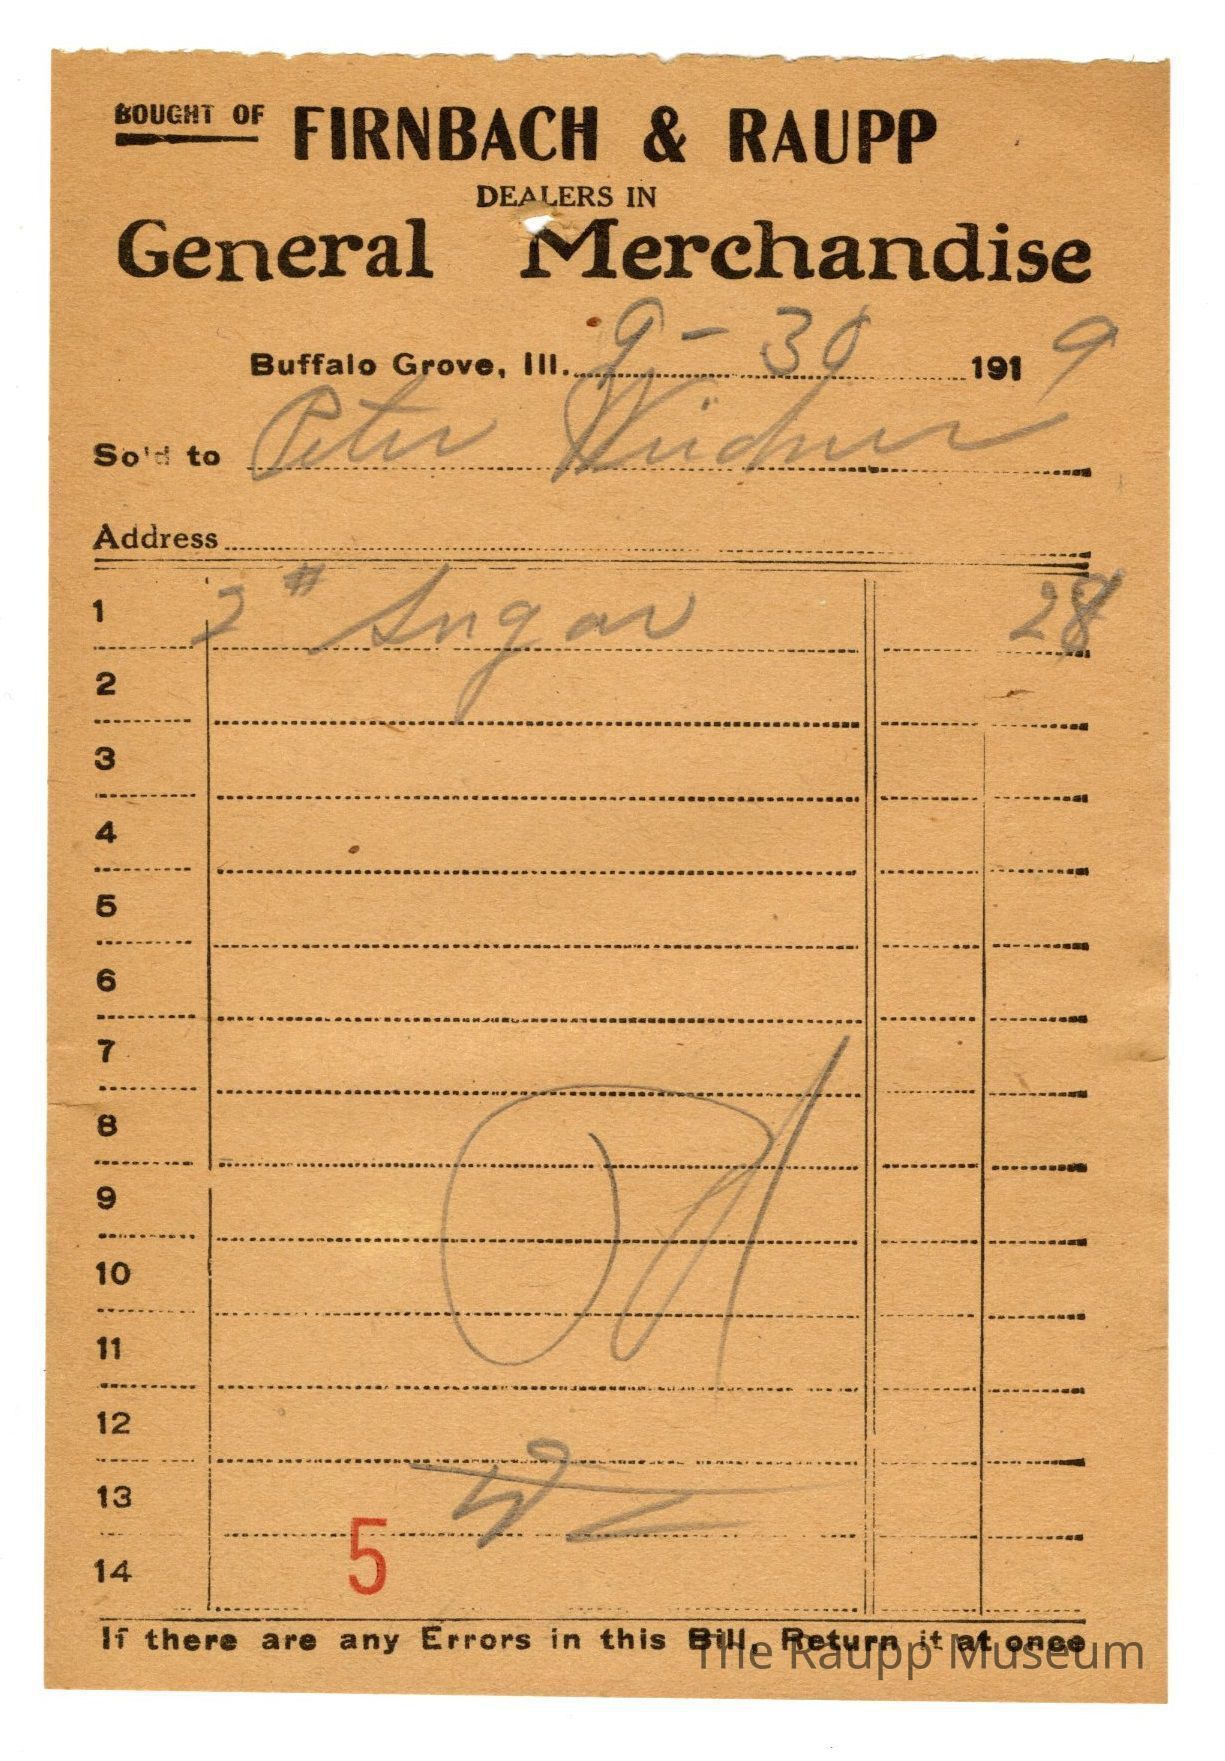 BOUGHT OF FIRNBACH & RAUPP
DEALERS IN
General Merchandise
Buffalo Grove, Ill. 9-30 1919
So'd to Peter Weidner
Address
1 2# Sugar 28
2
3
4
5
6
7
8
9
10
11
12
13
5
14
If there are any Errors in this Bill, Return it at once
The Raupp Museum